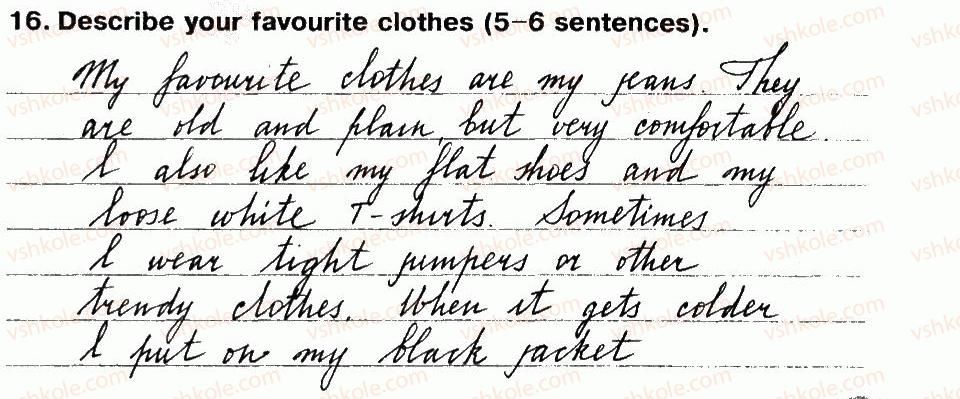 16. Describe your favourite clothes (5–6 sentences).
My favourite clothes are my jeans. They
are old and plain, but very comfortable.
I also like my flat shoes and my
loose white T-shirts. Sometimes
I wear tight jumpers or other
trendy clothes. When it gets colder
I put on my black jacket